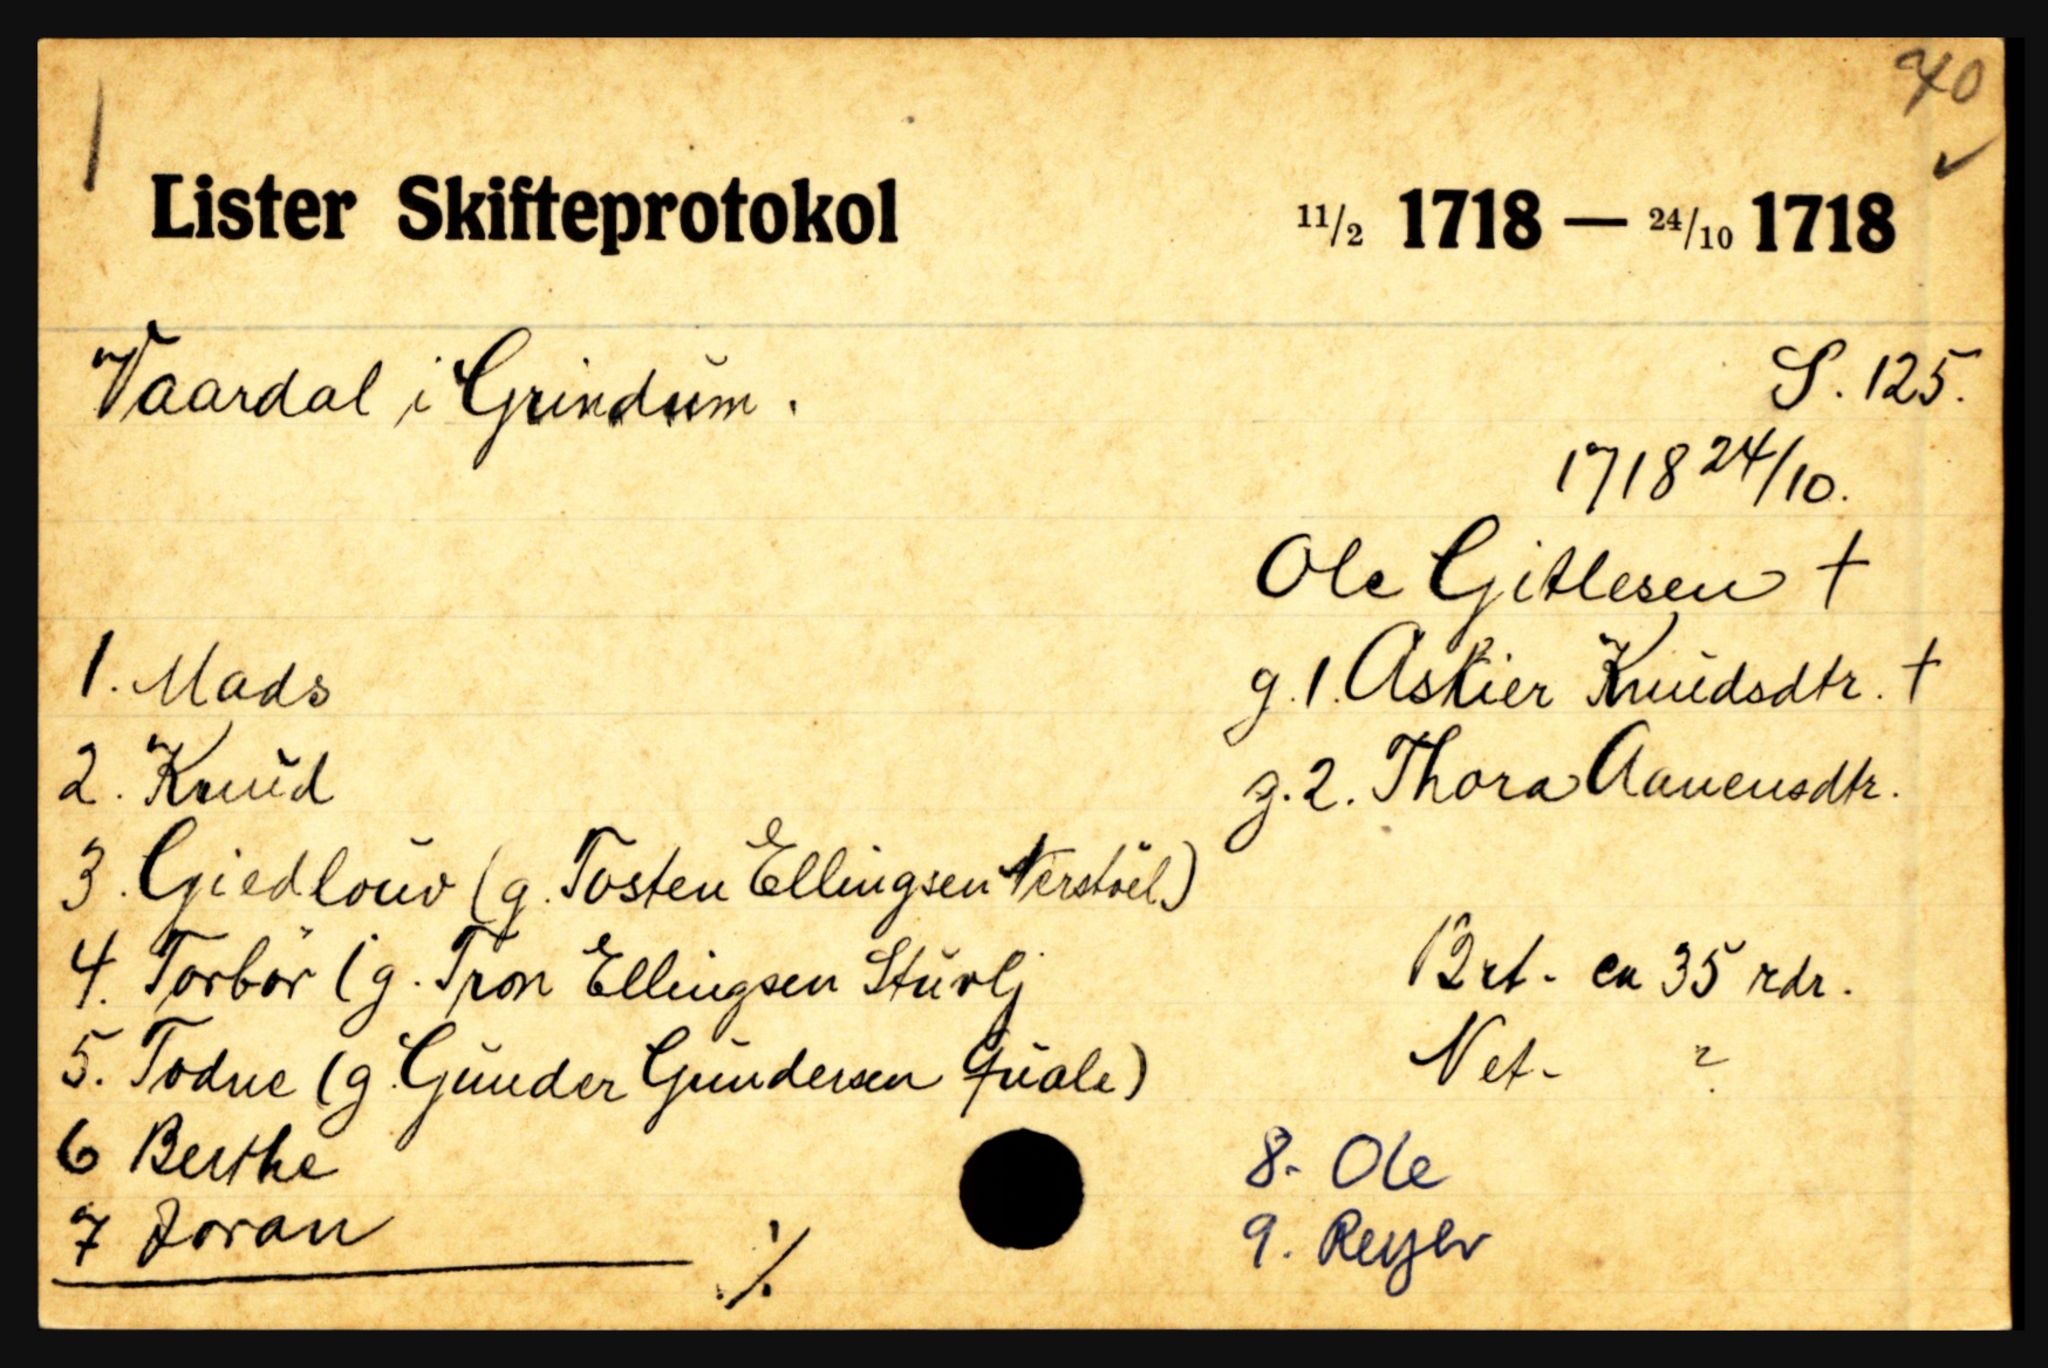 1
40
✓
Lister Skifteprotokol 11/2 1718 — 24/10 1718
Vaardal i Grindum.
S. 125.
1718 24/10.
Ole Gitlesen †
g. 1. Askier Knudsdtr. †
g. 2. Thora Aanensdtr.
1. Mads
2. Knud
3. Giedlouv (g. Tosten Ellingsen Nerstöel)
4. Torbör (g. Tron Ellingsen
5. Todne (g. Gunder Gundersen Quale)
6 Berthe
7 Joran
./.
Brt. ca 35 rdr.
Net. ?
8. Ole
9. Reyer